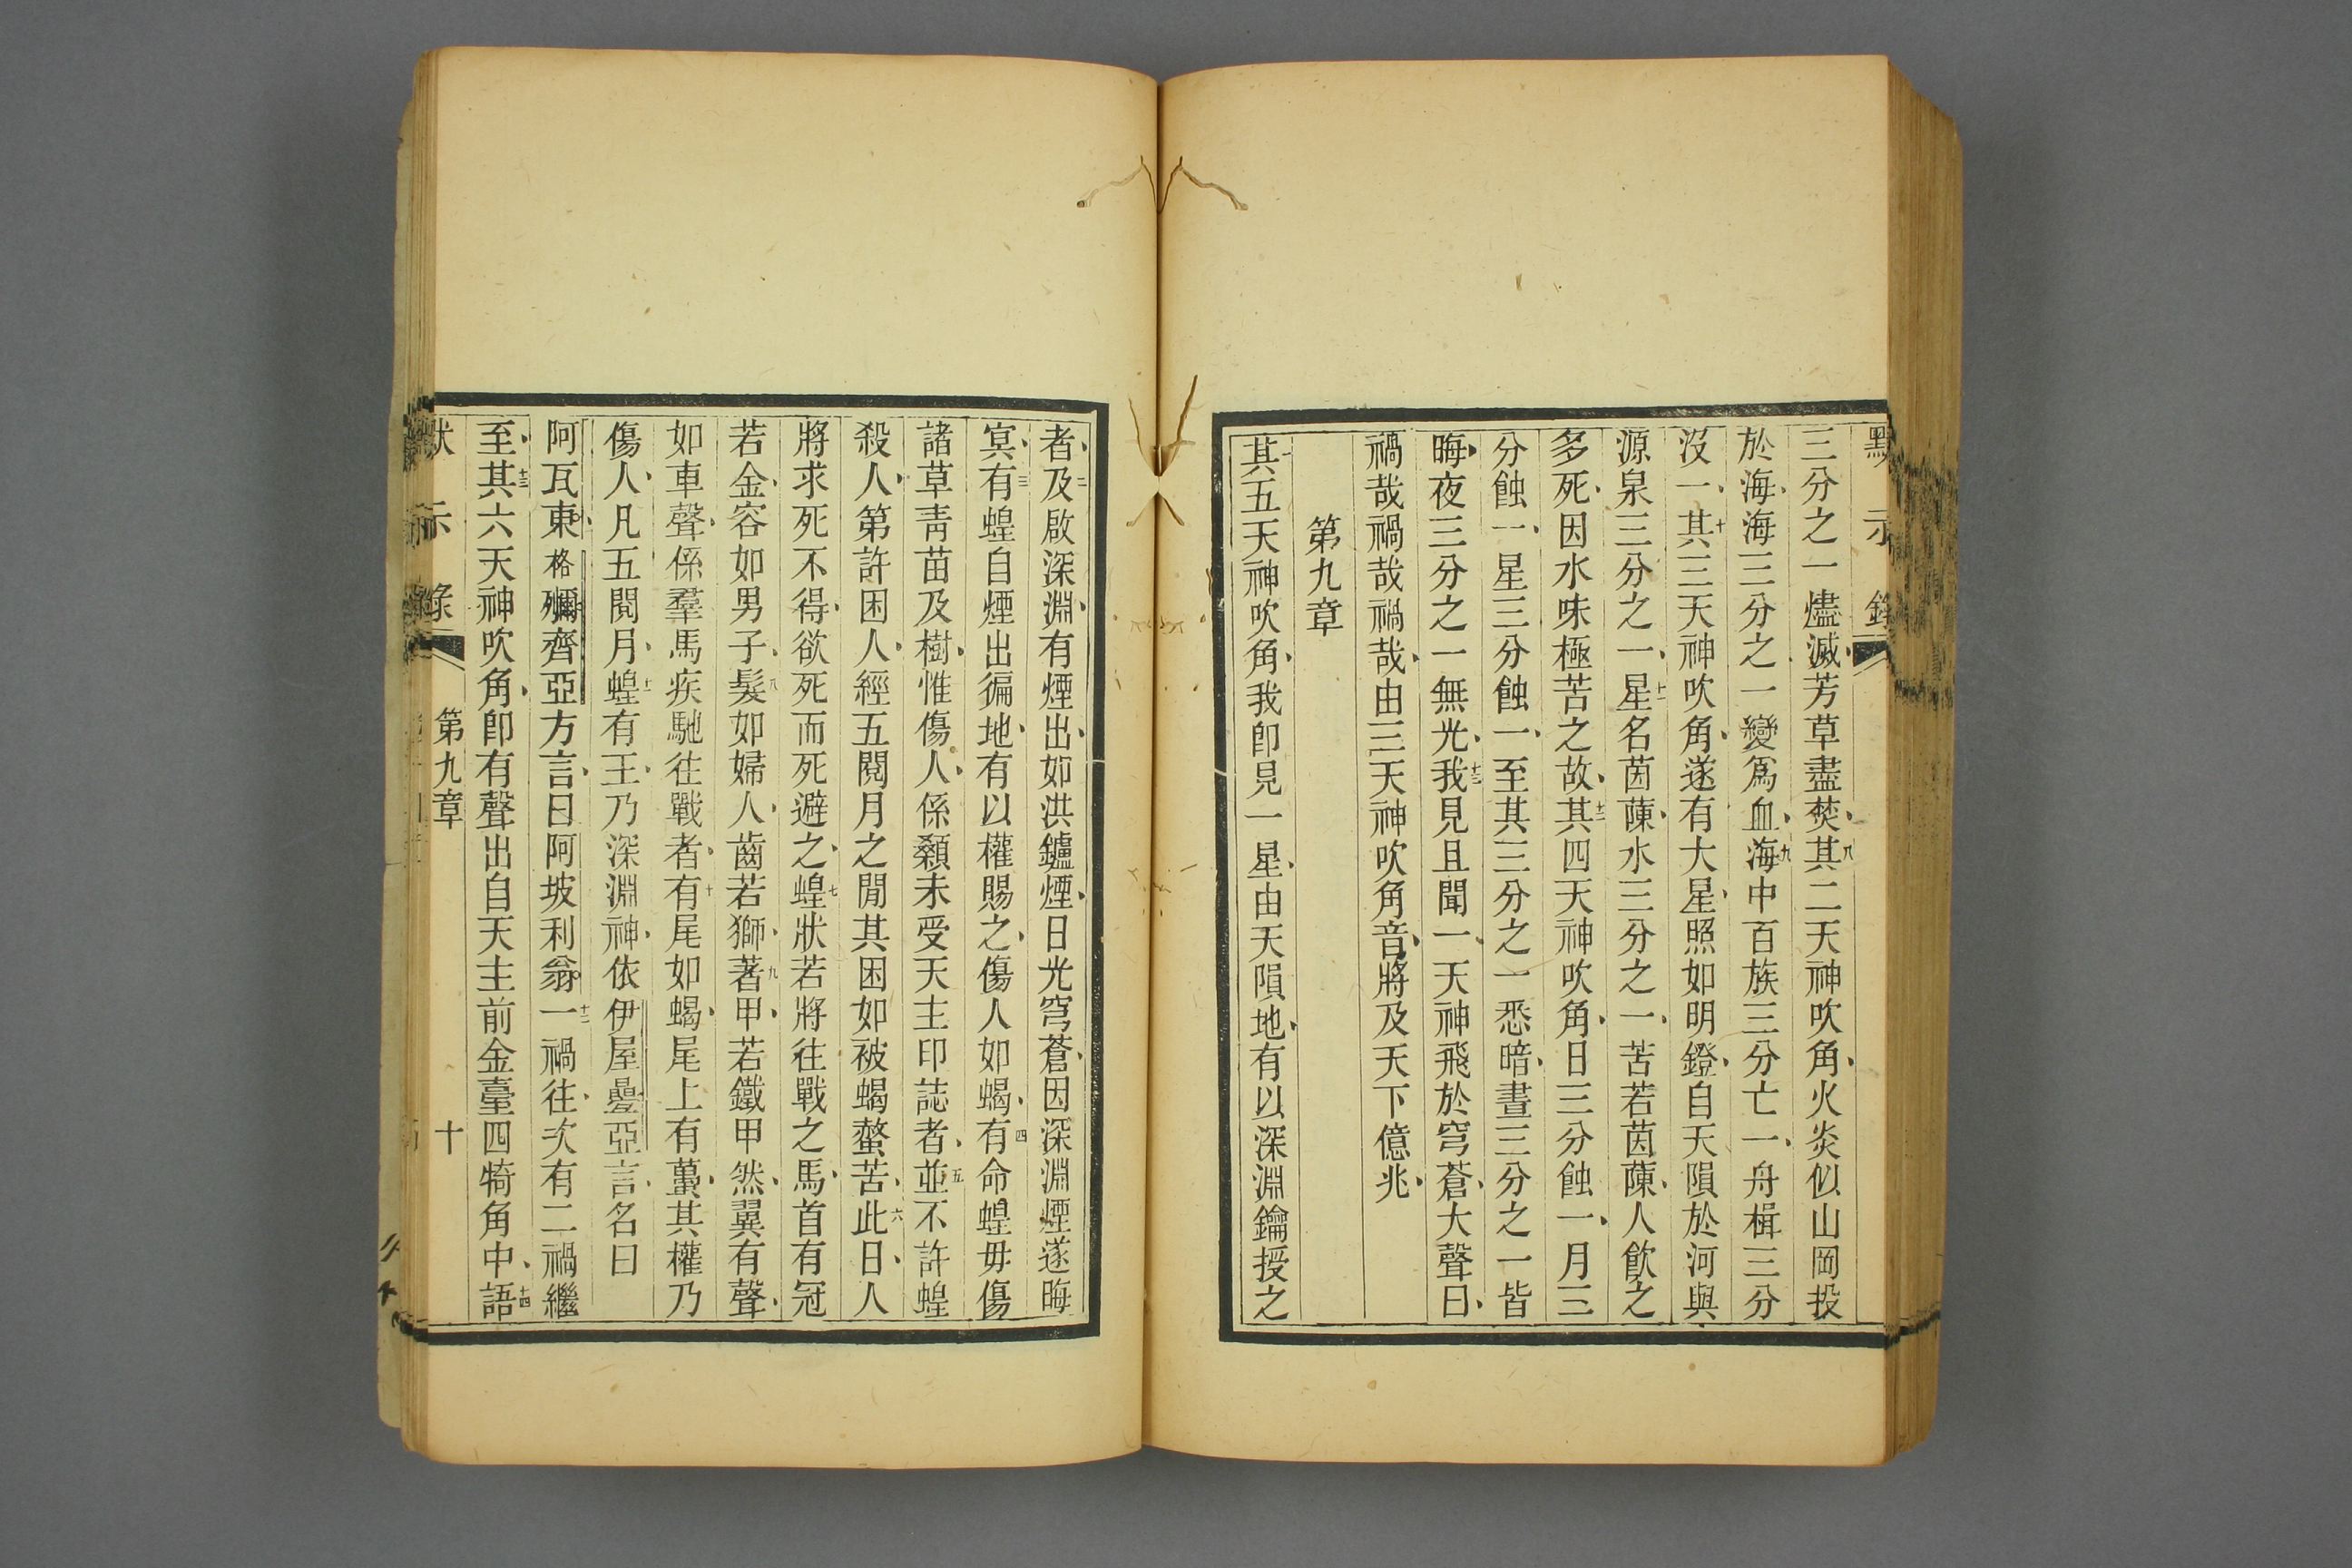 默示錄
三分之一燼滅芳草盡焚八其二天神吹角火炎似山岡投
於海海三分之一變爲血九海中百族三分亡一舟楫三分
沒一十其三天神吹角遂有大星照如明鐙自天隕於河與
源泉三分之一十一星名茵蔯水三分之一苦若茵蔯人飮之
多死因水味極苦之故十二其四天神吹角日三分蝕一月三
分蝕一星三分蝕一至其三分之一悉暗晝三分之一皆
晦夜三分之一無光十三我見且聞一天神飛於穹蒼大聲曰
禍哉禍哉禍哉由三天神吹角音將及天下億兆
第九章
一其五天神吹角我卽見一星由天隕地有以深淵鑰授之
者二及啟深淵有煙出如洪鑪煙日光穹蒼因深淵煙遂晦
冥三有蝗自煙出徧地有以權賜之傷人如蝎四有命蝗毋傷
諸草靑苗及樹惟傷人係顙未受天主印誌者五並不許蝗
殺人第許困人經五閱月之閒其困如被蝎螫苦六此日人
將求死不得欲死而死避之七蝗狀若將往戰之馬首有冠
若金容如男子八髮如婦人齒若獅九著甲若鐵甲然翼有聲
如車聲係羣馬疾馳往戰者十有尾如蝎尾上有蠆其權乃
傷人凡五閱月十一蝗有王乃深淵神依伊屋疊亞言名曰
阿瓦東格爾齊亞方言曰阿坡利翁十二一禍往次有二禍繼
至十三其六天神吹角卽有聲出自天主前金臺四犄角中十四語
默示錄 第九章 十